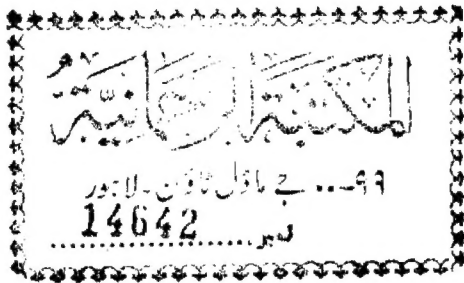 المكتبة الرحمانية
۹۹... جے ماڈل ٹاؤن۔ لاہور
نمبر 14642